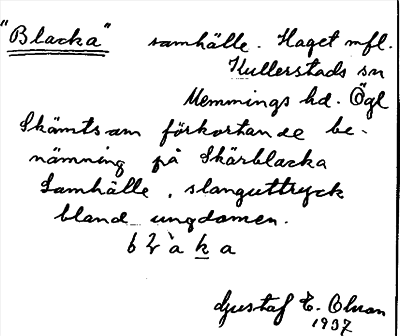 "Blacka" samhälle. Haget mfl.
Kullerstads sn
Memmings hd. Ögl
Skämtsam förkortande be-
nämning på Skärblacka
Samhälle, slanguttryck
bland ungdomen.
Gustaf E. Olsson
1937